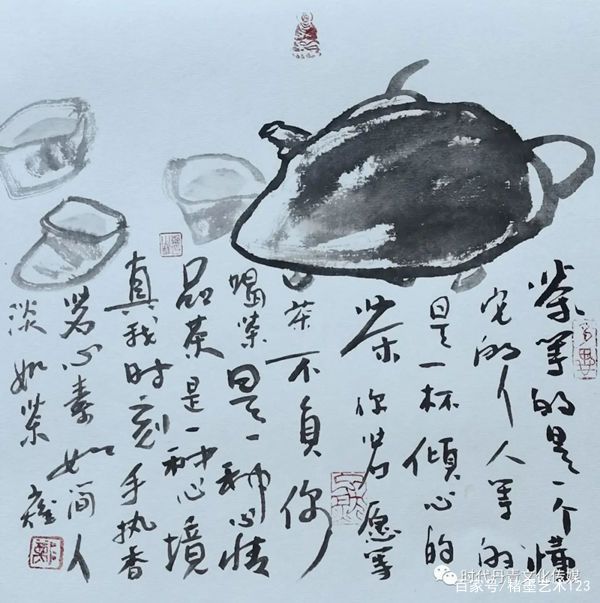 茶等的是一个懂
它的人人等的
是一杯倾心的
茶你若愿等
茶不负你
喝茶是一种心情
品茶是一种心境
真我时刻手执香
茗心素如简人
淡如茶
时代丹青文化传媒
百家号/楮墨艺术123